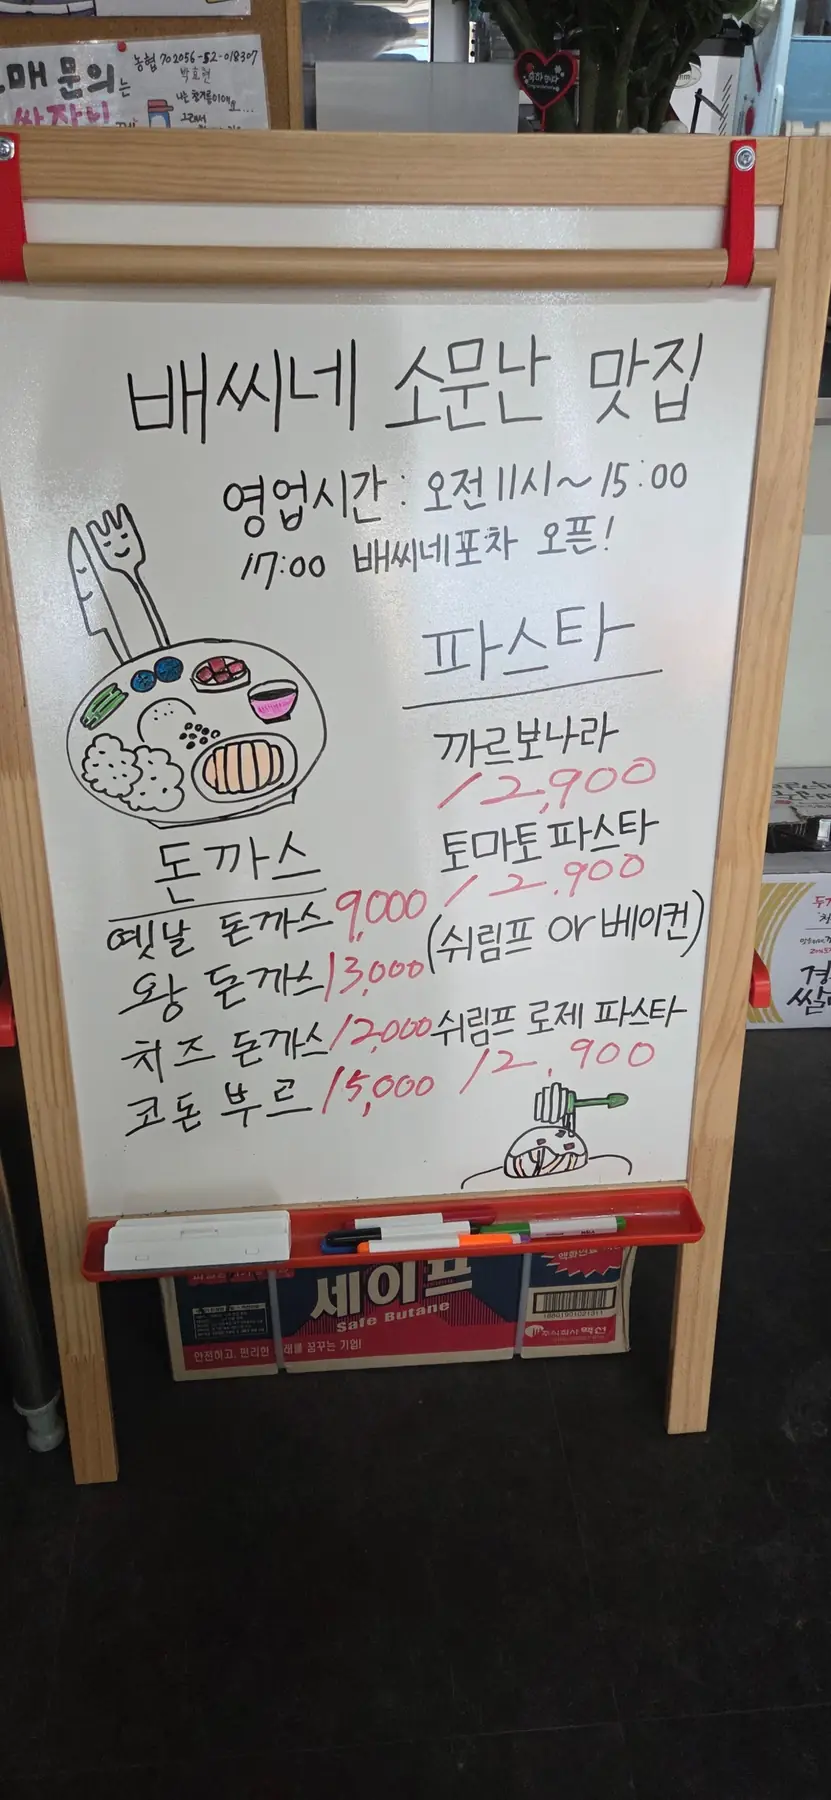 매 문의는
농협 702056-52-018307
박효현
나는 참기름이에요...
그래서
배씨네 소문난 맛집
영업시간: 오전 11시~15:00
17:00 배씨네포차 오픈!
파스타
까르보나라
12,900
토마토 파스타
12.900
(쉬림프 or 베이컨)
쉬림프 로제 파스타
12.900
돈까스
옛날 돈까스 9,000
왕 돈까스 13,000
치즈 돈까스 12,000
코돈 부르 15,000
세이프
Safe Butane
안전하고, 편리한 미래를 꿈꾸는 기업!
주식회사 맥선